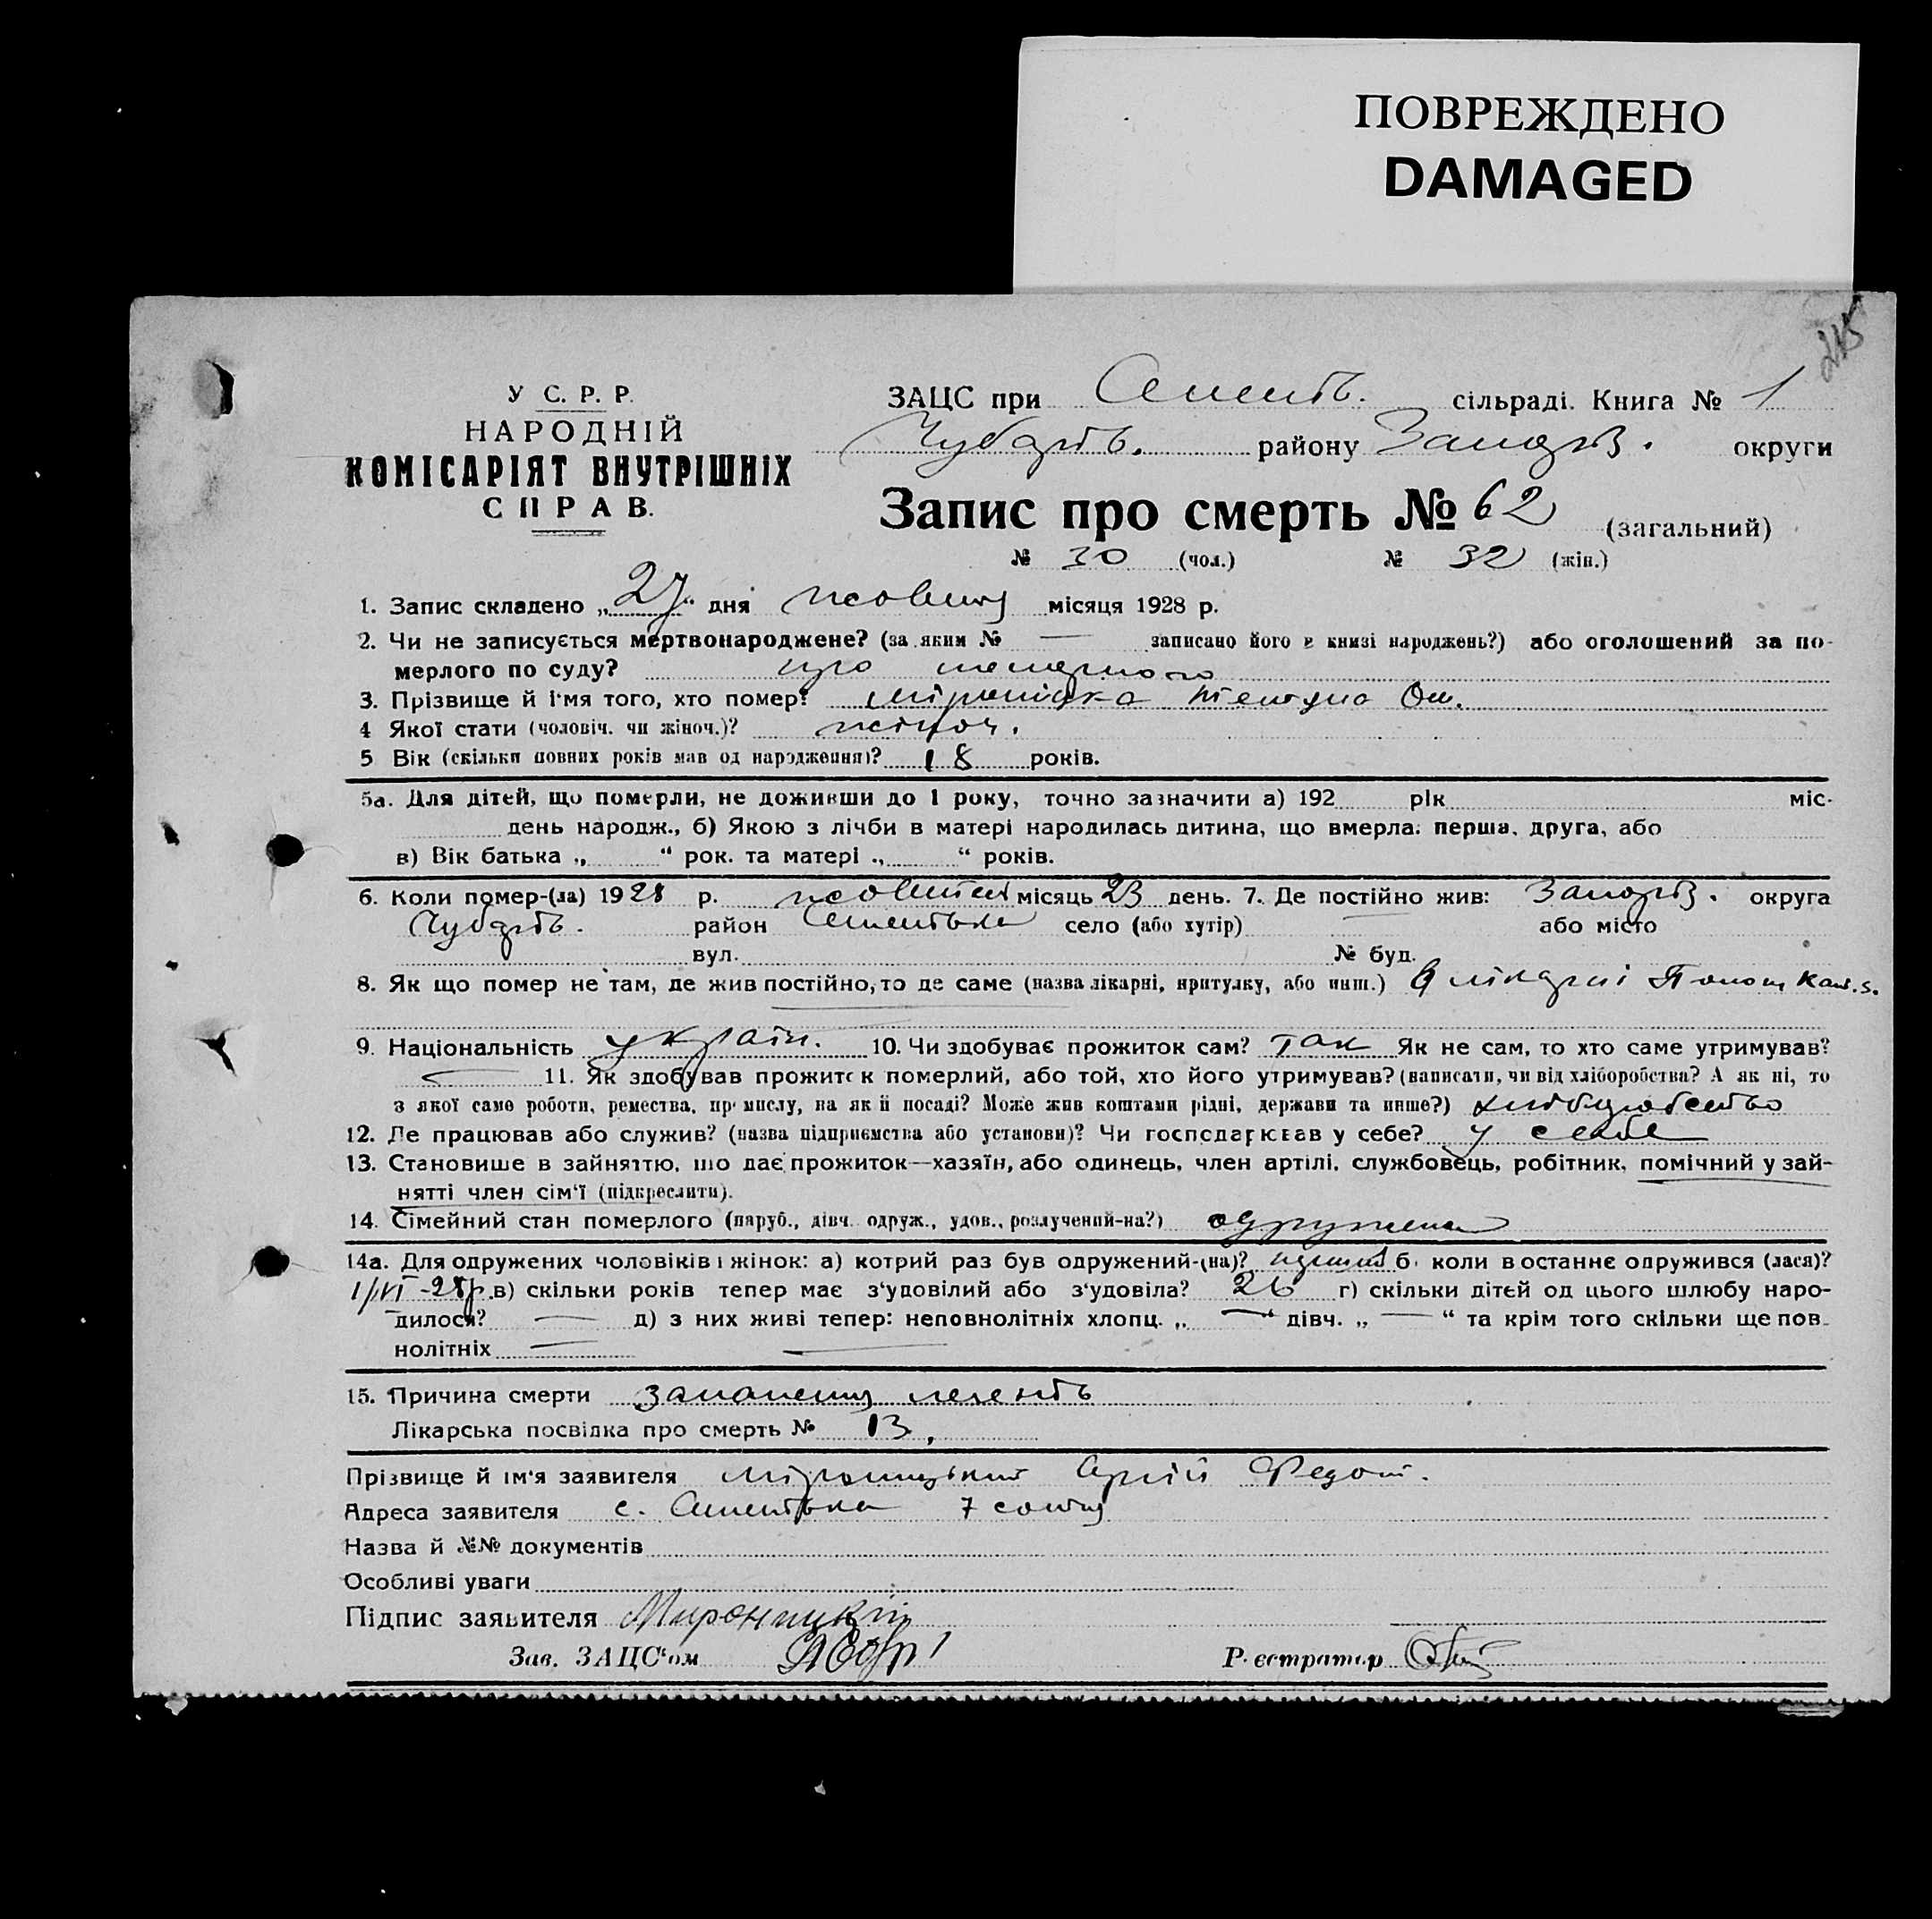 ПОВРЕЖДЕНО
DAMAGED
215
У С. Р. Р.
НАРОДНІЙ
КОМІСАРІЯТ ВНУТРІШНІХ
СПРАВ.
ЗАЦС при сільраді. Книга № 1
Чубарів. району Запоріз. округи
Запис про смерть № 62 (загальний)
№ 30 (чол.) № 32 (жін.)
1. Запис складено „27“ дня жовтня місяця 1928 р.
2. Чи не записується мертвонароджене? (за яким № — записано його в книзі народжень?) або оголошений за по-
мерлого по суду? про
3. Прізвище й ім'я того, хто помер?
4 Якої стати (чоловіч. чи жіноч.)? жіноч.
5 Вік (скільки повних років мав од народження)? 18 років.
5а. Для дітей, що померли, не доживши до 1 року, точно зазначити а) 192 рік міс.
день народж., б) Якою з лічби в матері народилась дитина, що вмерла: перша, друга, або
в) Вік батька „ “ рок. та матері „ “ років.
6. Коли помер-(ла) 1928 р. жовтня місяць 23 день. 7. Де постійно жив: Запоріз. округа
Чубарів. район село (або хутір) — або місто
вул. № буд.
8. Як що помер не там, де жив постійно, то де саме (назва лікарні, притулку, або инш.) В лікарні
9. Національність україн. 10. Чи здобуває прожиток сам? так Як не сам, то хто саме утримував?
— 11. Як здобував прожиток померлий, або той, хто його утримував? (написати, чи від хліборобства? А як ні, то
з якої саме роботи, ремества, промислу, на якій посаді? Може жив коштами рідні, держави та инше?) хліборобство
12. Де працював або служив? (назва підприємства або установи)? Чи господарював у себе? у себе
13. Становище в зайняттю, що дає прожиток—хазяїн, або одинець, член артілі, службовець, робітник, помічний у зай-
нятті член сім'ї (підкреслити).
14. Сімейний стан померлого (паруб., дівч. одруж., удов., розлучений-на?) одружена
14а. Для одружених чоловіків і жінок: а) котрий раз був одружений-(на)? перший б. коли в останнє одружився (лася)?
1/VI-28р. в) скільки років тепер має з'удовілий або з'удовіла? г) скільки дітей од цього шлюбу наро-
дилося? — д) з них живі тепер: неповнолітніх хлопц. „ —“ дівч. „ — “ та крім того скільки ще пов-
нолітніх — —
15. Причина смерти запалення легень
Лікарська посвідка про смерть № 13,
Прізвище й ім'я заявителя
Адреса заявителя с. 7 сотня
Назва й №№ документів
Особливі уваги
Підпис заявителя
Зав. ЗАЦС'ом
Реєстратор